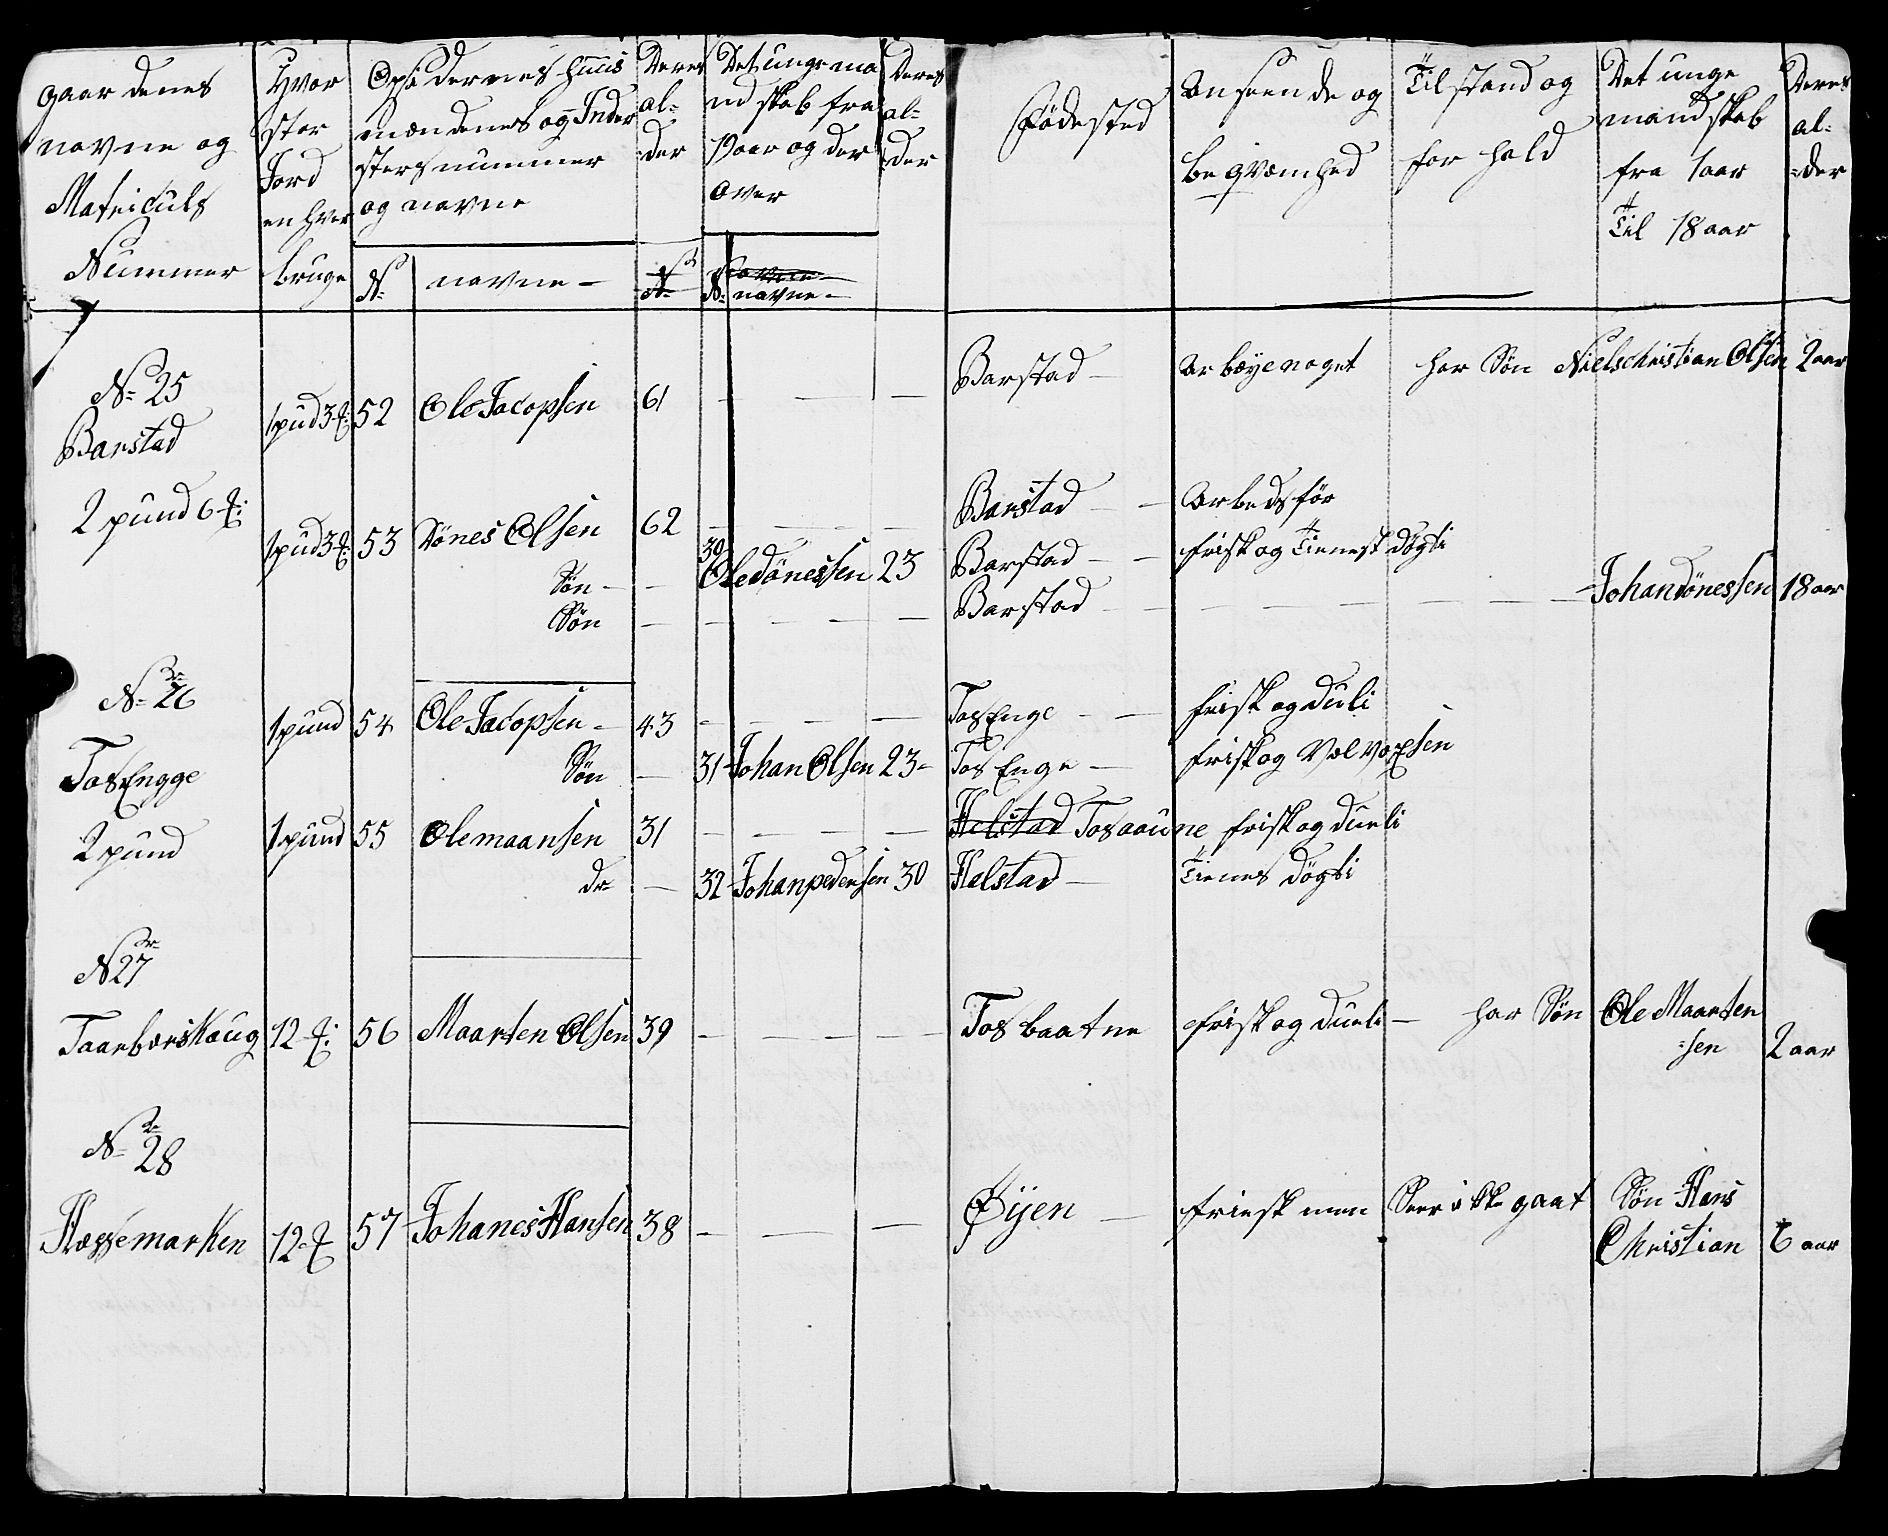 gaardenes navne og Matriculs Nummer
Hvor stor Jord en hver bruge
Opsiddernes huus mændenes og Inderstersnummer og navne
Deres al=der
Det unge mandskab fra 19 aar og der over
Deres al=der
Fødested
Anseende og beqvæmhed
Tilstand og forhold
Det unge mandskab fra 1 aar Til 18 aar
Deres al=der
N navne N navne
N 25
Barstad 1 pud 3 52 Ole Jacopsen 61 Barstad Arbøye noget har Søn Nielschristian Olsen 2 aar
2 pund 6
1 pud 3 53 Dönes Olsen 62 Barstad Arbedsfør
Søn 30 Ole dönessen 23 Barstad frisk og Tienest dögti
Søn Barstad Johan dönessen 18 aar
Nr 26
TosEngge 1 pund 54 Ole Jacopsen 43 TosEnge frisk og duli
Søn 31 Johan Olsen 23 Tos Enge frisk og Vel Voxsen
2 pund 1 pund 55 Ole maansen 31 Helstad Tosaaune frisk og dueli
dr 32 Johan pedersen 30 Halstad Tienes dögti
Nr 27
Taarberskaug 12 56 Maarten Olsen 39 Tosbaatne frisk og dueli har Søn Ole Maarten
=sen 2 aar
Nr 28
Hassemarken 12 57 Johanes Hansen 38 Øijen friesk men Seer ikke gaat Søn Hans
Christian 6 aar